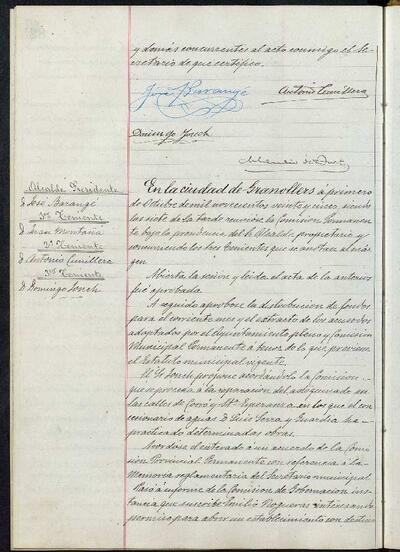 y demás concurrentes al acto conmigo el Se-
cretario de que certifico.
José Barangé
Antonio Cumillera
Domingo Jonch
Alcalde Presidente
D José Barangé
1er Teniente
D Juan Montañá
2º Teniente
D Antonio Cumillera
3er Teniente
D Domingo Jonch
En la ciudad de Granollers a primero
de Octubre de mil novecientos veinte y cinco, siendo
las siete de la tarde reunióse la Comisión Permanen-
te bajo la presidencia del Sr. Alcalde, propietario y
concurriendo los tres tenientes que se anotan al mar-
gen
Abierta la sesión y leída el acta de la anterior
fué aprobada.
A seguido apruébase la distribución de fondos
para el corriente mes y el extracto de los acuerdos
adoptados por el Ayuntamiento pleno y Comisión
Municipal Permanente a tenor de lo que previene
el Estatuto municipal vigente.
El Sr Jonch propone acordándolo la Comisión
que se proceda a la reparación del adoquinado en
las calles de Corró y Mª Esperanza en los que el con-
cesionario de aguas D Luis Serra y Guardia ha
practicado determinadas obras.
Acordóse el enterado a un acuerdo de la Comi-
sión Provincial Permanente con referencia a la
Memoria reglamentaria del Secretario municipal
Pasó a informe de la Comisión de Gobernación ins-
tancia que suscribe Emilio Nogueras interesando
permiso para abrir un establecimiento con destino